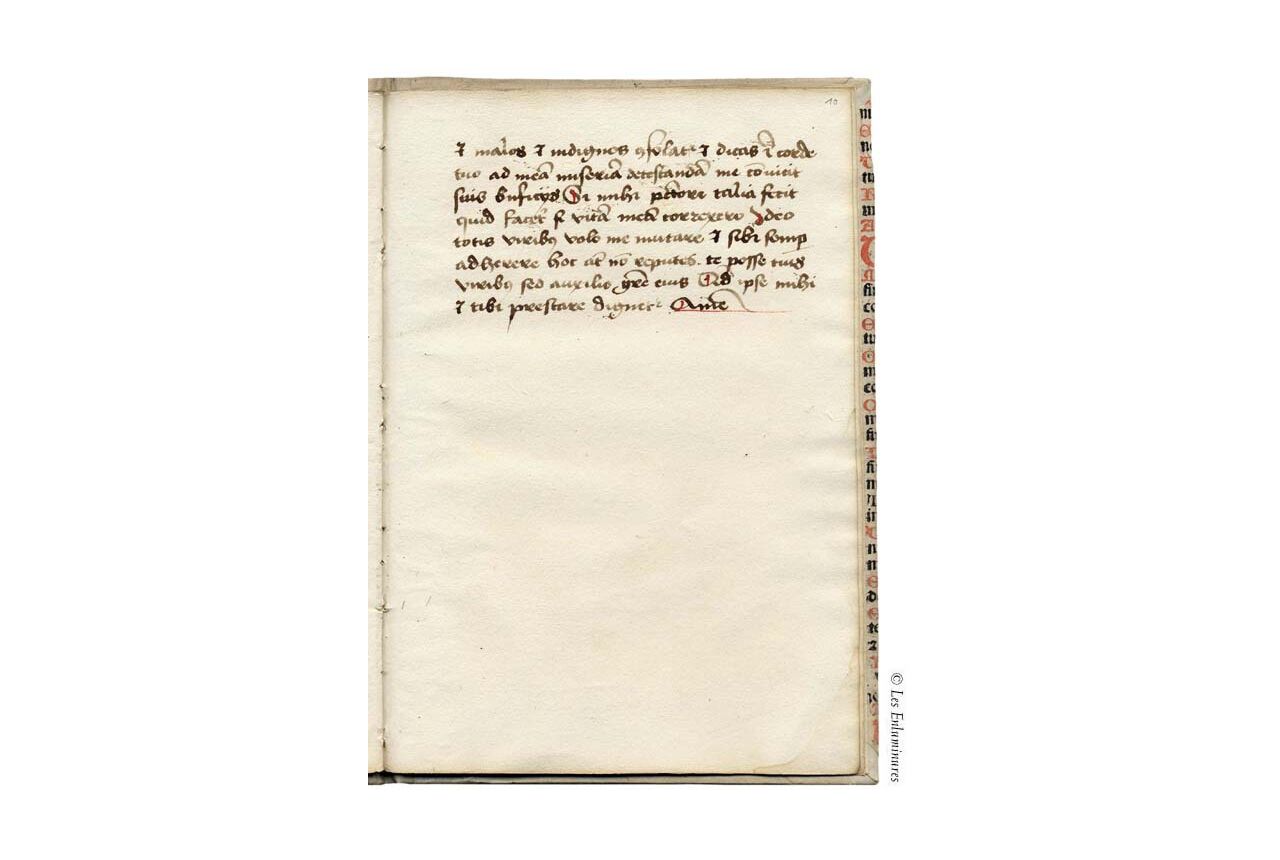 10
⁊ malos ⁊ indignos ⁊ dicas ī corde
tuo ad meā miseriā detestandā me cōuicit
suis bn̄ficijs Si mihi pctori talia fecit
quid facet si vitā meā correxero Ideo
totis viribꝫ volo me mutare ⁊ sibi semp
adherere hoc at nō reputes te posse tuis
viribꝫ sed auxilio grē eius Qd ipse mihi
⁊ tibi prestare dignet Amē
© Les Enluminures